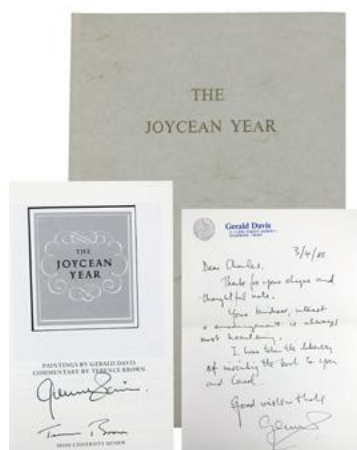 THE
JOYCEAN YEAR
THE
JOYCEAN
YEAR
PAINTINGS BY GERALD DAVIS
COMMENTARY BY TERENCE BROWN
IRISH UNIVERSITY REVIEW
Gerald Davis
3/4/85
Dear Charles,
Thanks for your cheque and
thoughtful note.
Your kindness, interest
& encouragement is always
most heartening.
I have taken the liberty
of inscribing the book to you
and Carol
Good wishes
Gerald